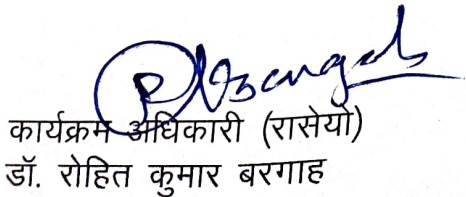 कार्यक्रम अधिकारी (रासेयो)
डॉ. रोहित कुमार बरगाह